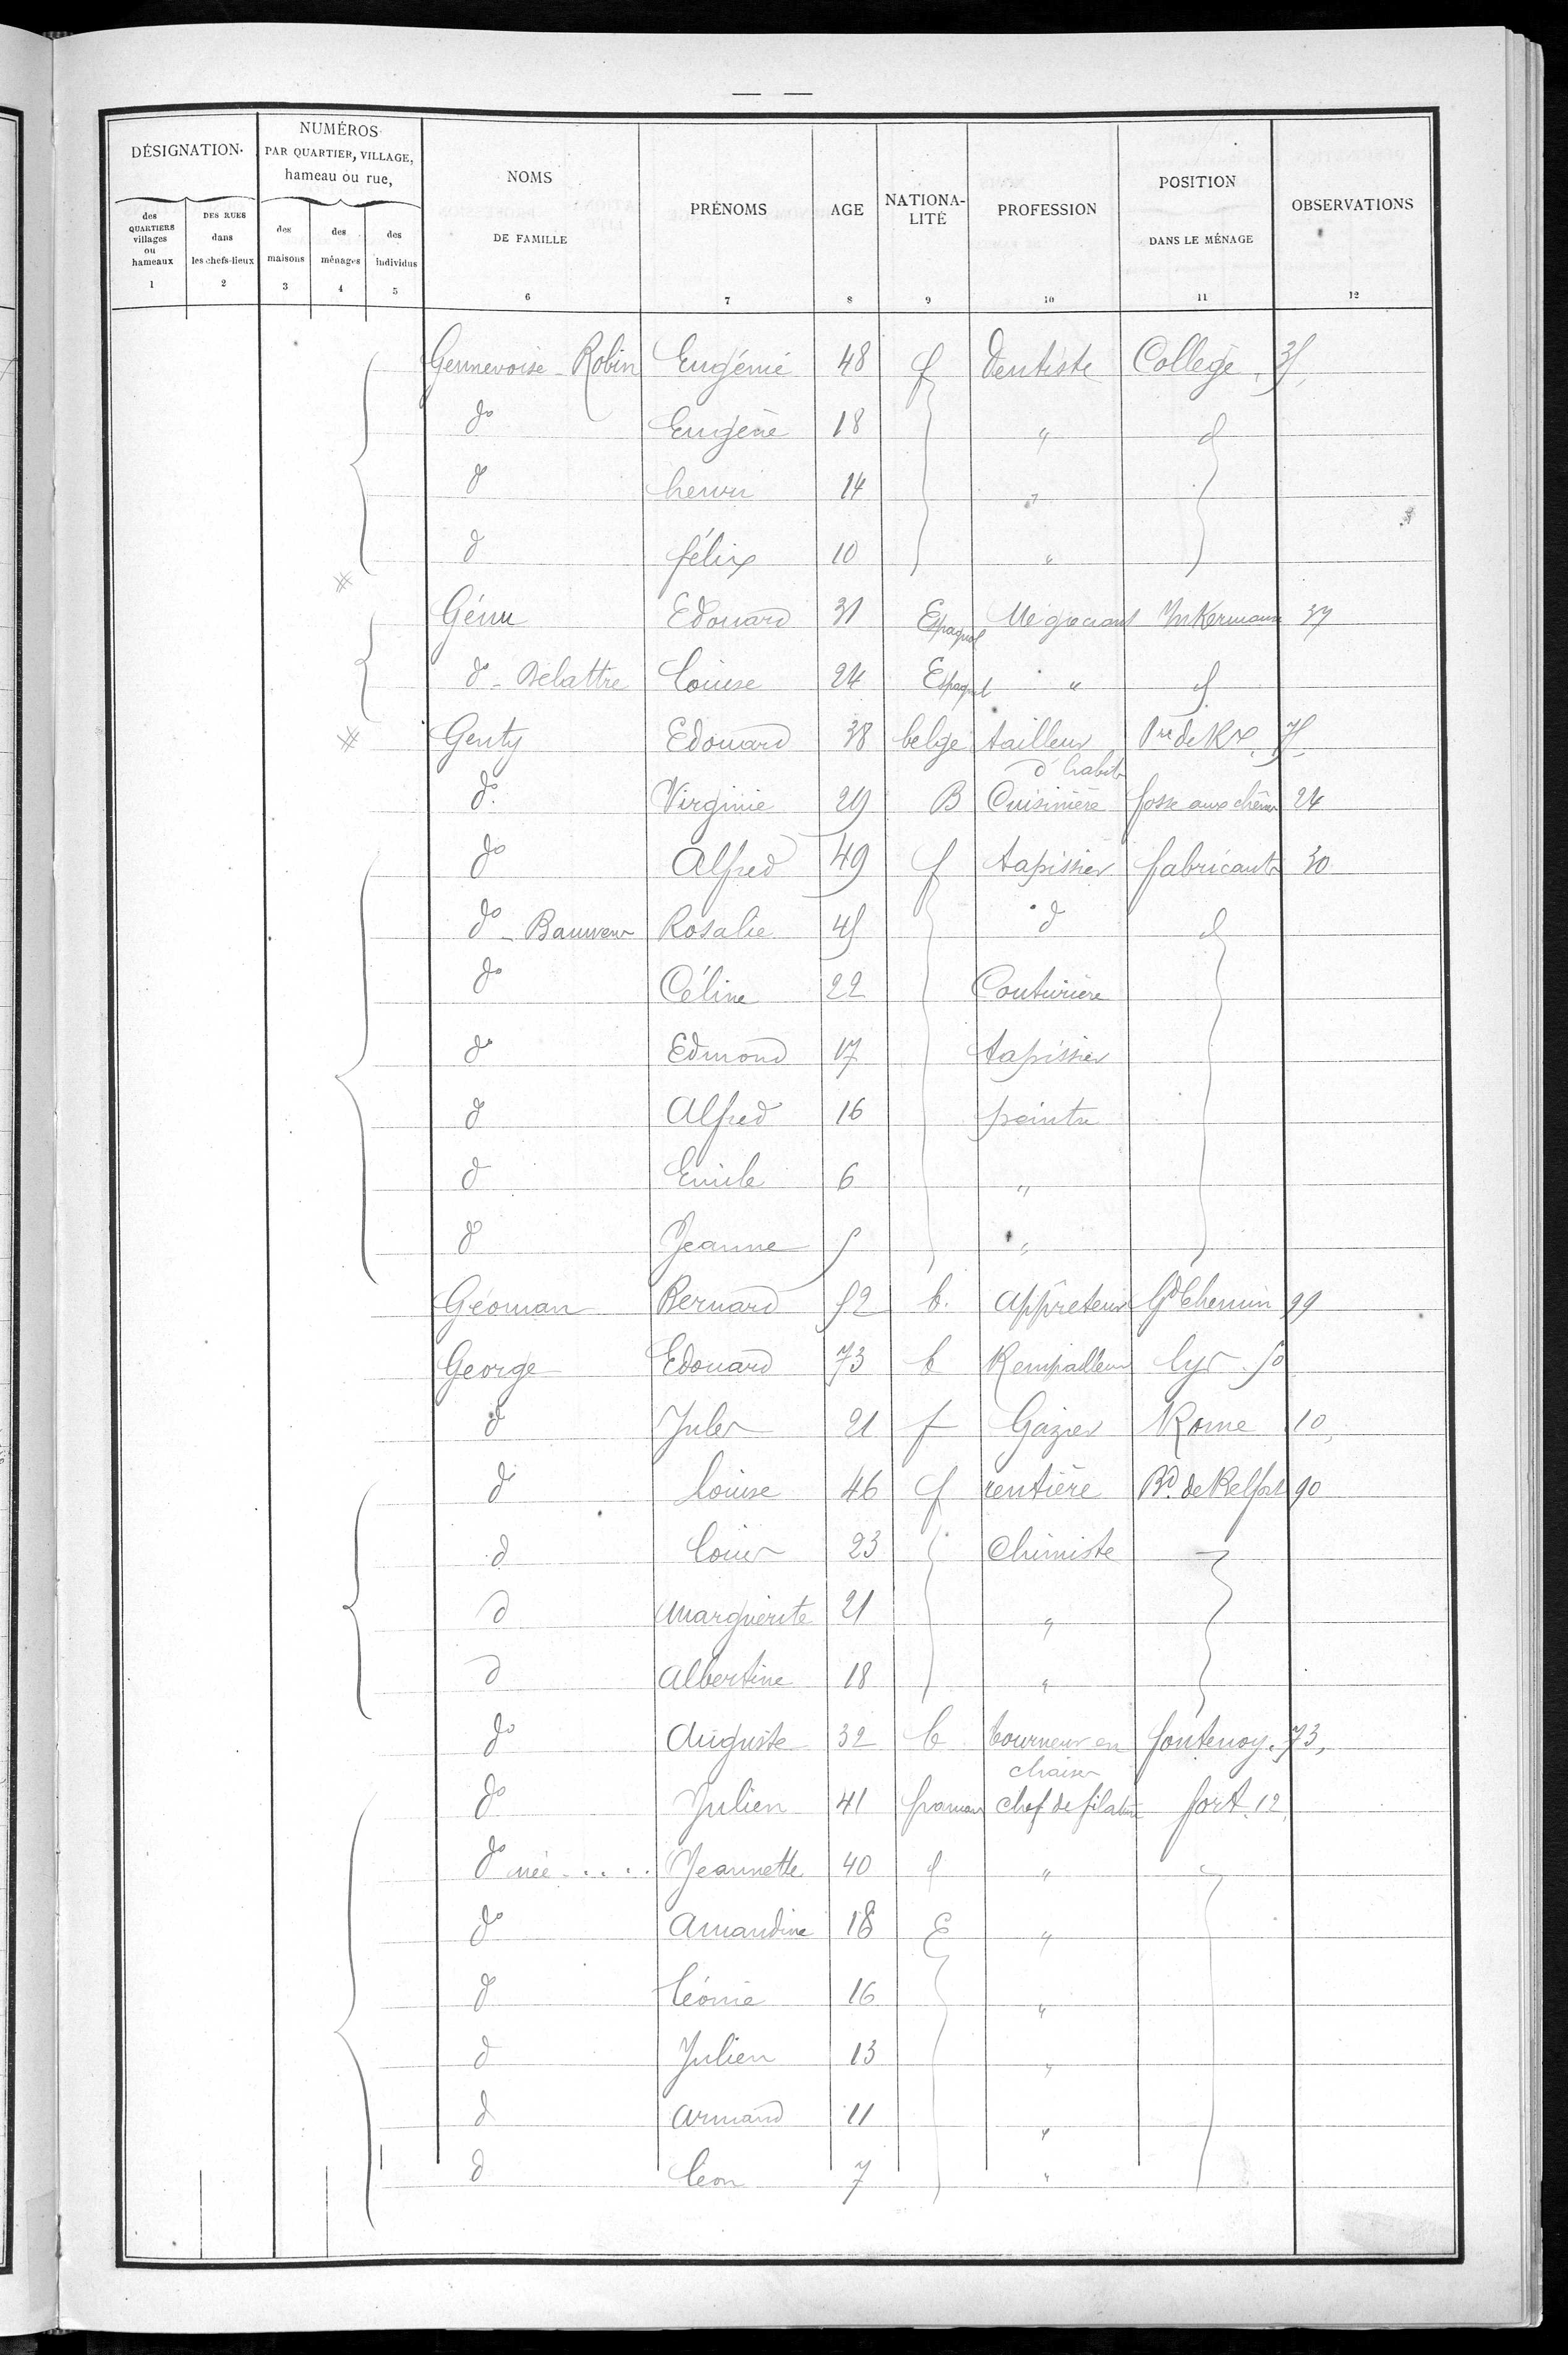 — —
DÉSIGNATION.
NUMÉROS
PAR QUARTIER, VILLAGE,
hameau ou rue,
NOMS
DE FAMILLE
PRÉNOMS
AGE
NATIONA-
LITÉ
PROFESSION
POSITION
DANS LE MÉNAGE
OBSERVATIONS
des
QUARTIERS
villages
ou
hameaux
DES RUES
dans
les chefs-lieux
des
maisons
des
ménages
des
individus
1 2 3 4 5 6 7 8 9 10 11 12
Gennevoise - Robin Eugénie 48 f Dentiste Collège, 35,
do Eugène 18 " d
do henri 14 "
d félix 10 "
Edouard 31 Espagnol Négociant Inkermann 37
do - Delattre Louise 24 Espagnol " d
Genty Edouard 38 belge tailleur d'habits de Rx, 75
do Virginie 29 B Cuisinière fosse aux chênes 24
do Alfred 49 f tapissier fabricants 30
do - Rosalie 45 d d
do Céline 22 Couturière
do Edmond 17 tapissier
d Alfred 16 peintre
d Emile 6 "
do Jeanne 5 "
Géoman Bernard 52 b. apprêteur Gd Chemin 99
George Edouard 73 b Rempailleur Lys. 50
d Jules 21 f Gazier Rome 10,
do Louise 46 f rentière Bd. de Belfort 90
d Louis 23 Chimiste
d Marguerite 21 "
d Albertine 18 "
do Auguste 32 b tourneur en chaises fontenoy. 73,
do Julien 41 français chef de filature fort. 12,
do née .... Jeannette 40 d "
do Amandine 18 "
do Léonie 16 "
d Julien 13 "
d Armand 11 "
d Léon 7 "